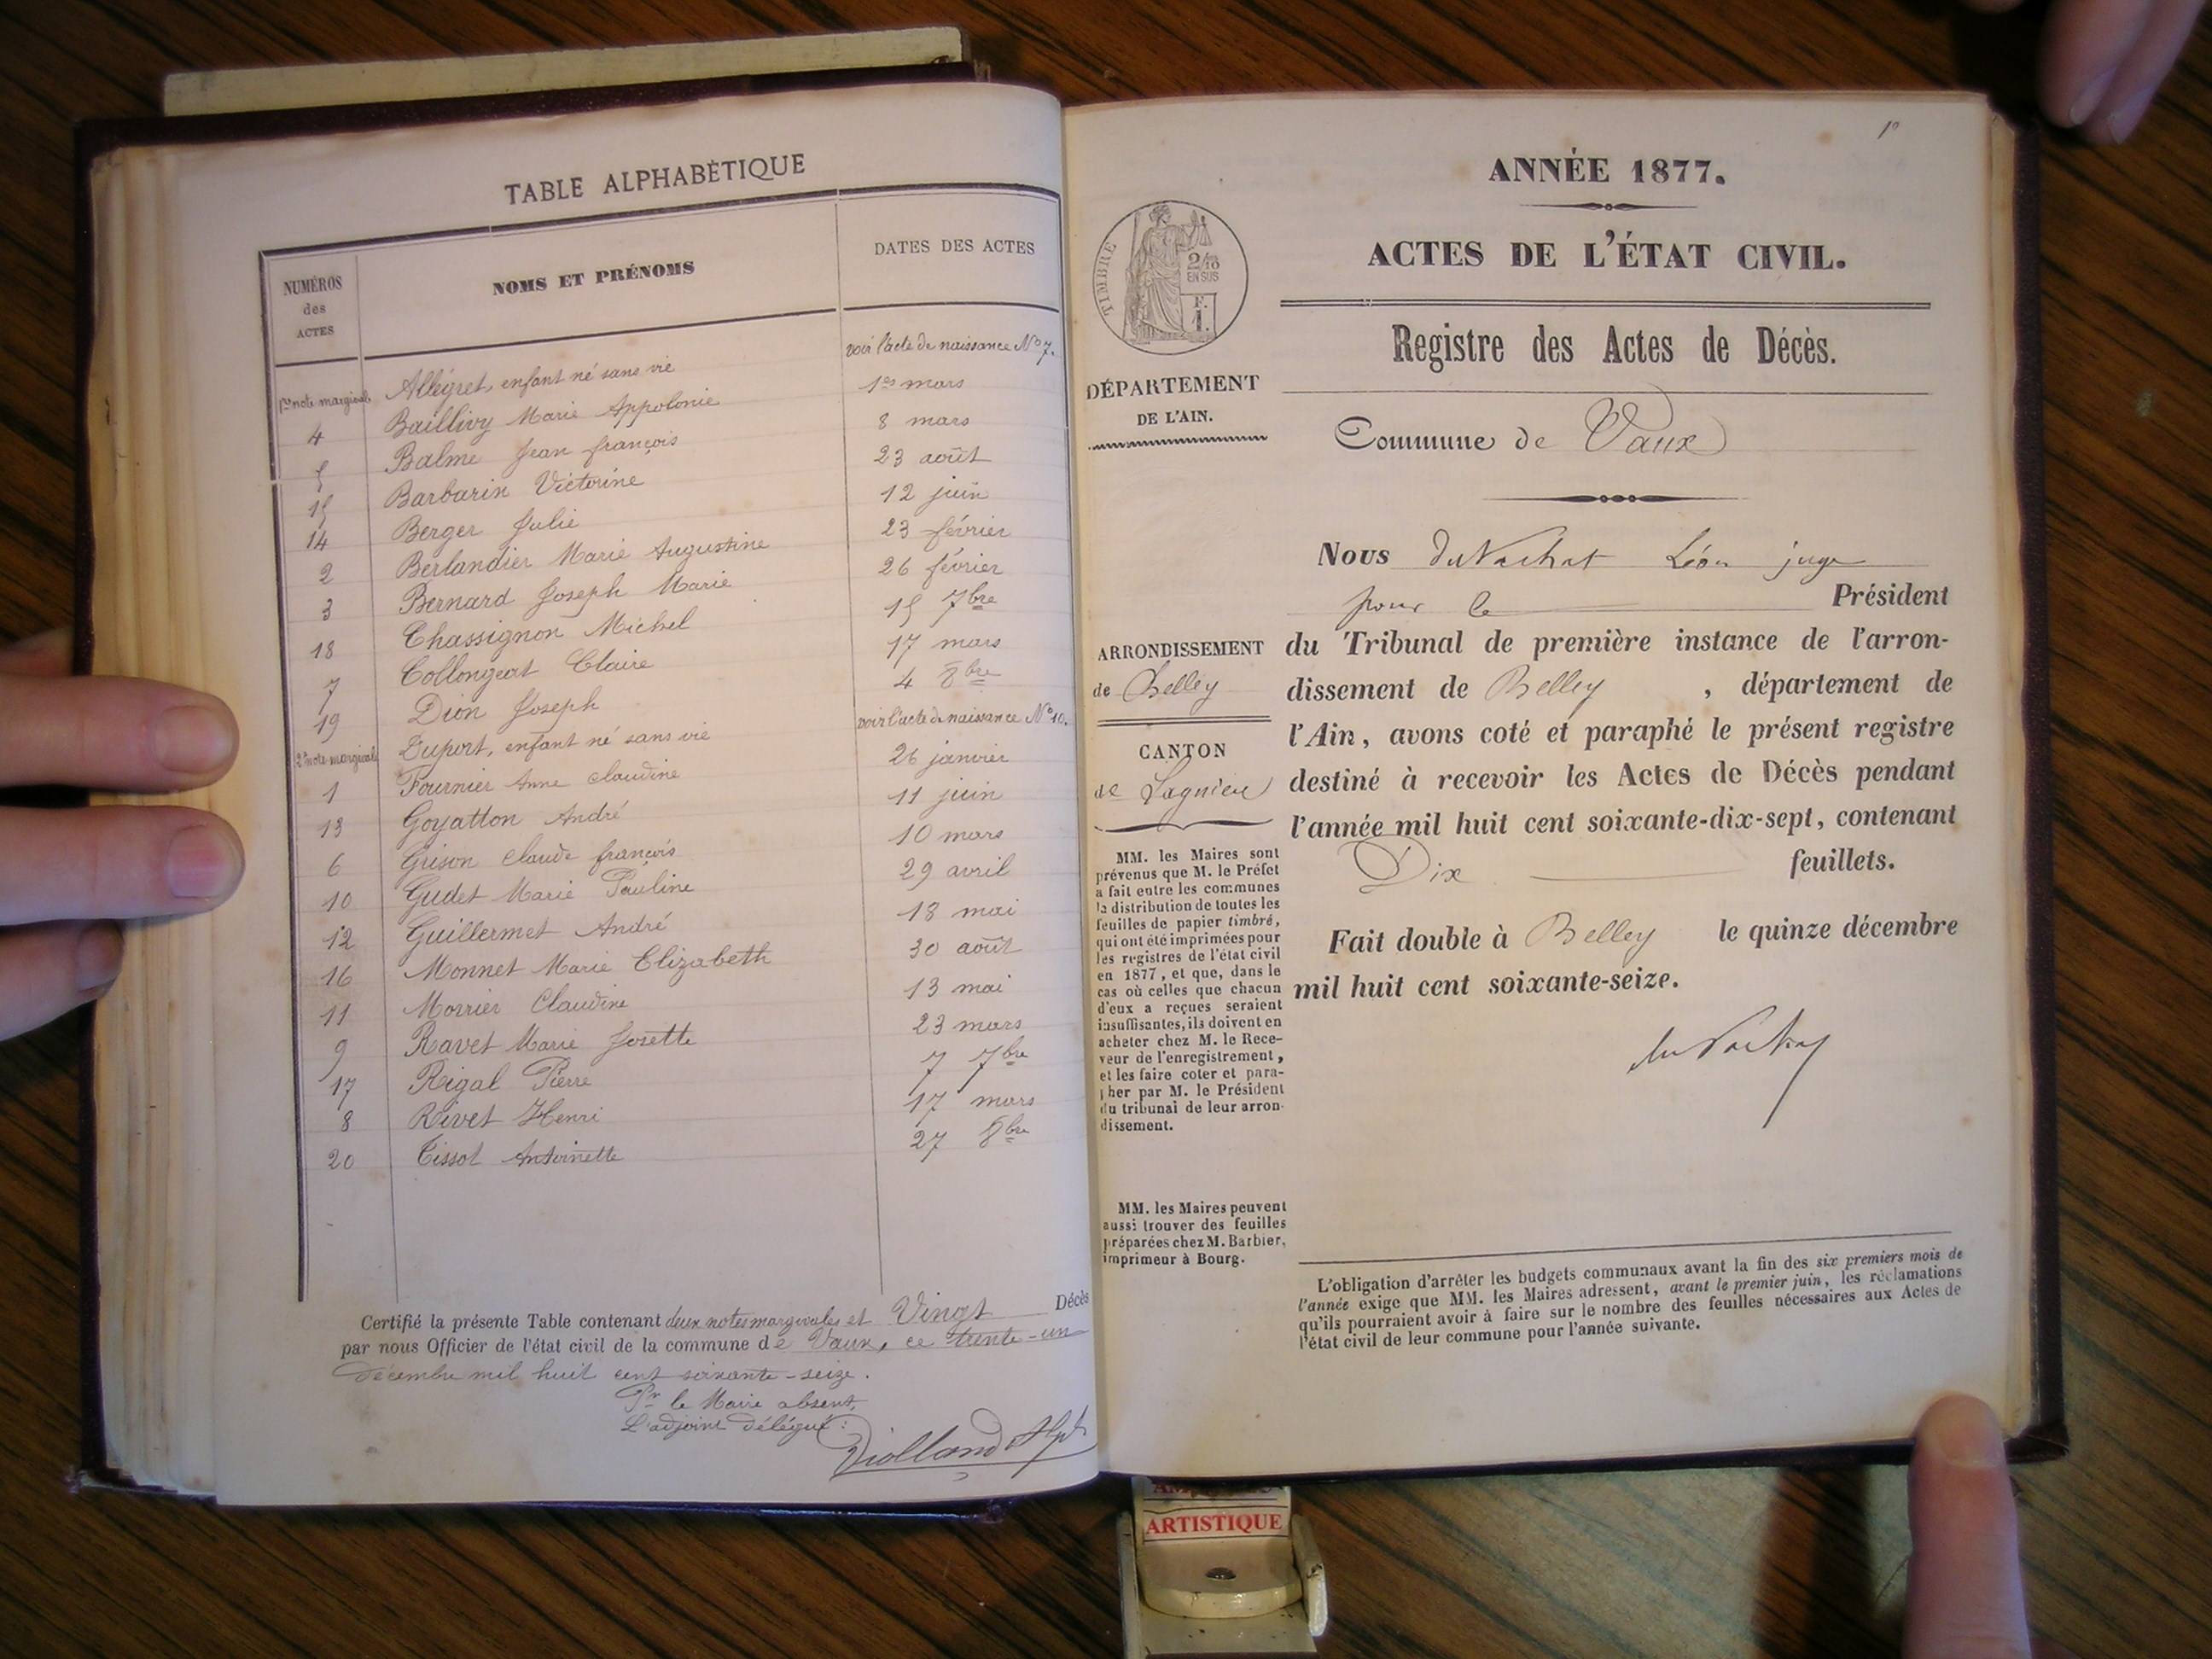 TABLE ALPHABÉTIQUE
NUMÉROS
des
ACTES
NOMS ET PRÉNOMS
DATES DES ACTES
1re note marginale Allégret, enfant né sans vie voir l'acte de naissance No 7.
4 Baillivy Marie Appolonie 1er mars
5 Balme Jean françois 8 mars
15 Barbarin Victorine 23 août
14 Berger Julie 12 juin
2 Berlandier Marie Augustine 23 février
3 Bernard Joseph Marie 26 février
18 Chassignon Michel 15 7bre
7 Collongeat Claire 17 mars
19 Dion Joseph 4 8bre
2e note marginale Duport, enfant né sans vie voir l'acte de naissance No 10.
1 Fournier Anne Claudine 26 janvier
13 Goyatton André 11 juin
6 Grison Claude françois 10 mars
10 Gudet Marie Pauline 29 avril
12 Guillermet André 18 mai
16 Monnet Marie Elizabeth 30 août
11 Morrier Claudine 13 mai
9 Ravet Marie Josette 23 mars
17 Rigal Pierre 7 7bre
8 Rivet Henri 17 mars
20 Tissot Antoinette 27 8bre
Certifié la présente Table contenant deux notes marginales et Vingt Décès
par nous Officier de l'état civil de la commune de Vaux, ce trente-un
décembre mil huit cent soixante-seize.
Pr le Maire absent,
L'adjoint délégué :
Violland
1e
ANNÉE 1877.
ACTES DE L'ÉTAT CIVIL.
Registre des Actes de Décès.
Commune de Vaux
TIMBRE
2/10
EN SUS
F.
1.
DÉPARTEMENT
DE L'AIN.
ARRONDISSEMENT
de Belley
CANTON
de Lagnieu
MM. les Maires sont
prévenus que M. le Préfet
a fait entre les communes
la distribution de toutes les
feuilles de papier timbré,
qui ont été imprimées pour
les registres de l'état civil
en 1877, et que, dans le
cas où celles que chacun
d'eux a reçues seraient
insuffisantes, ils doivent en
acheter chez M. le Rece-
veur de l'enregistrement,
et les faire coter et para-
pher par M. le Président
du tribunal de leur arron-
dissement.
MM. les Maires peuvent
aussi trouver des feuilles
préparées chez M. Barbier,
imprimeur à Bourg.
Nous du Vachat Léon juge
pour le Président
du Tribunal de première instance de l'arron-
dissement de Belley , département de
l'Ain, avons coté et paraphé le présent registre
destiné à recevoir les Actes de Décès pendant
l'année mil huit cent soixante-dix-sept, contenant
Dix feuillets.
Fait double à Belley le quinze décembre
mil huit cent soixante-seize.
du Vachat
L'obligation d'arrêter les budgets communaux avant la fin des six premiers mois de
l'année exige que MM. les Maires adressent, avant le premier juin, les réclamations
qu'ils pourraient avoir à faire sur le nombre des feuilles nécessaires aux Actes de
l'état civil de leur commune pour l'année suivante.
ARTISTIQUE